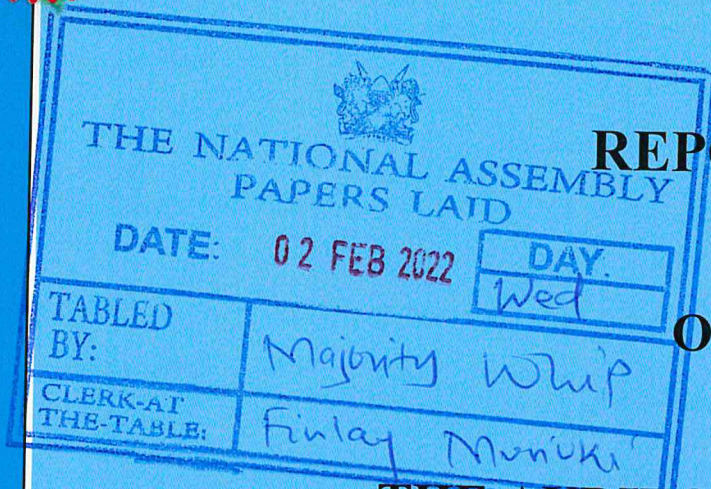 THE NATIONAL ASSEMBLY
PAPERS LAID
REP
DATE: 02 FEB 2022 DAY.
Wed
TABLED
BY: Majority Whip
O
CLERK-AT
THE-TABLE: Finlay Muriuki